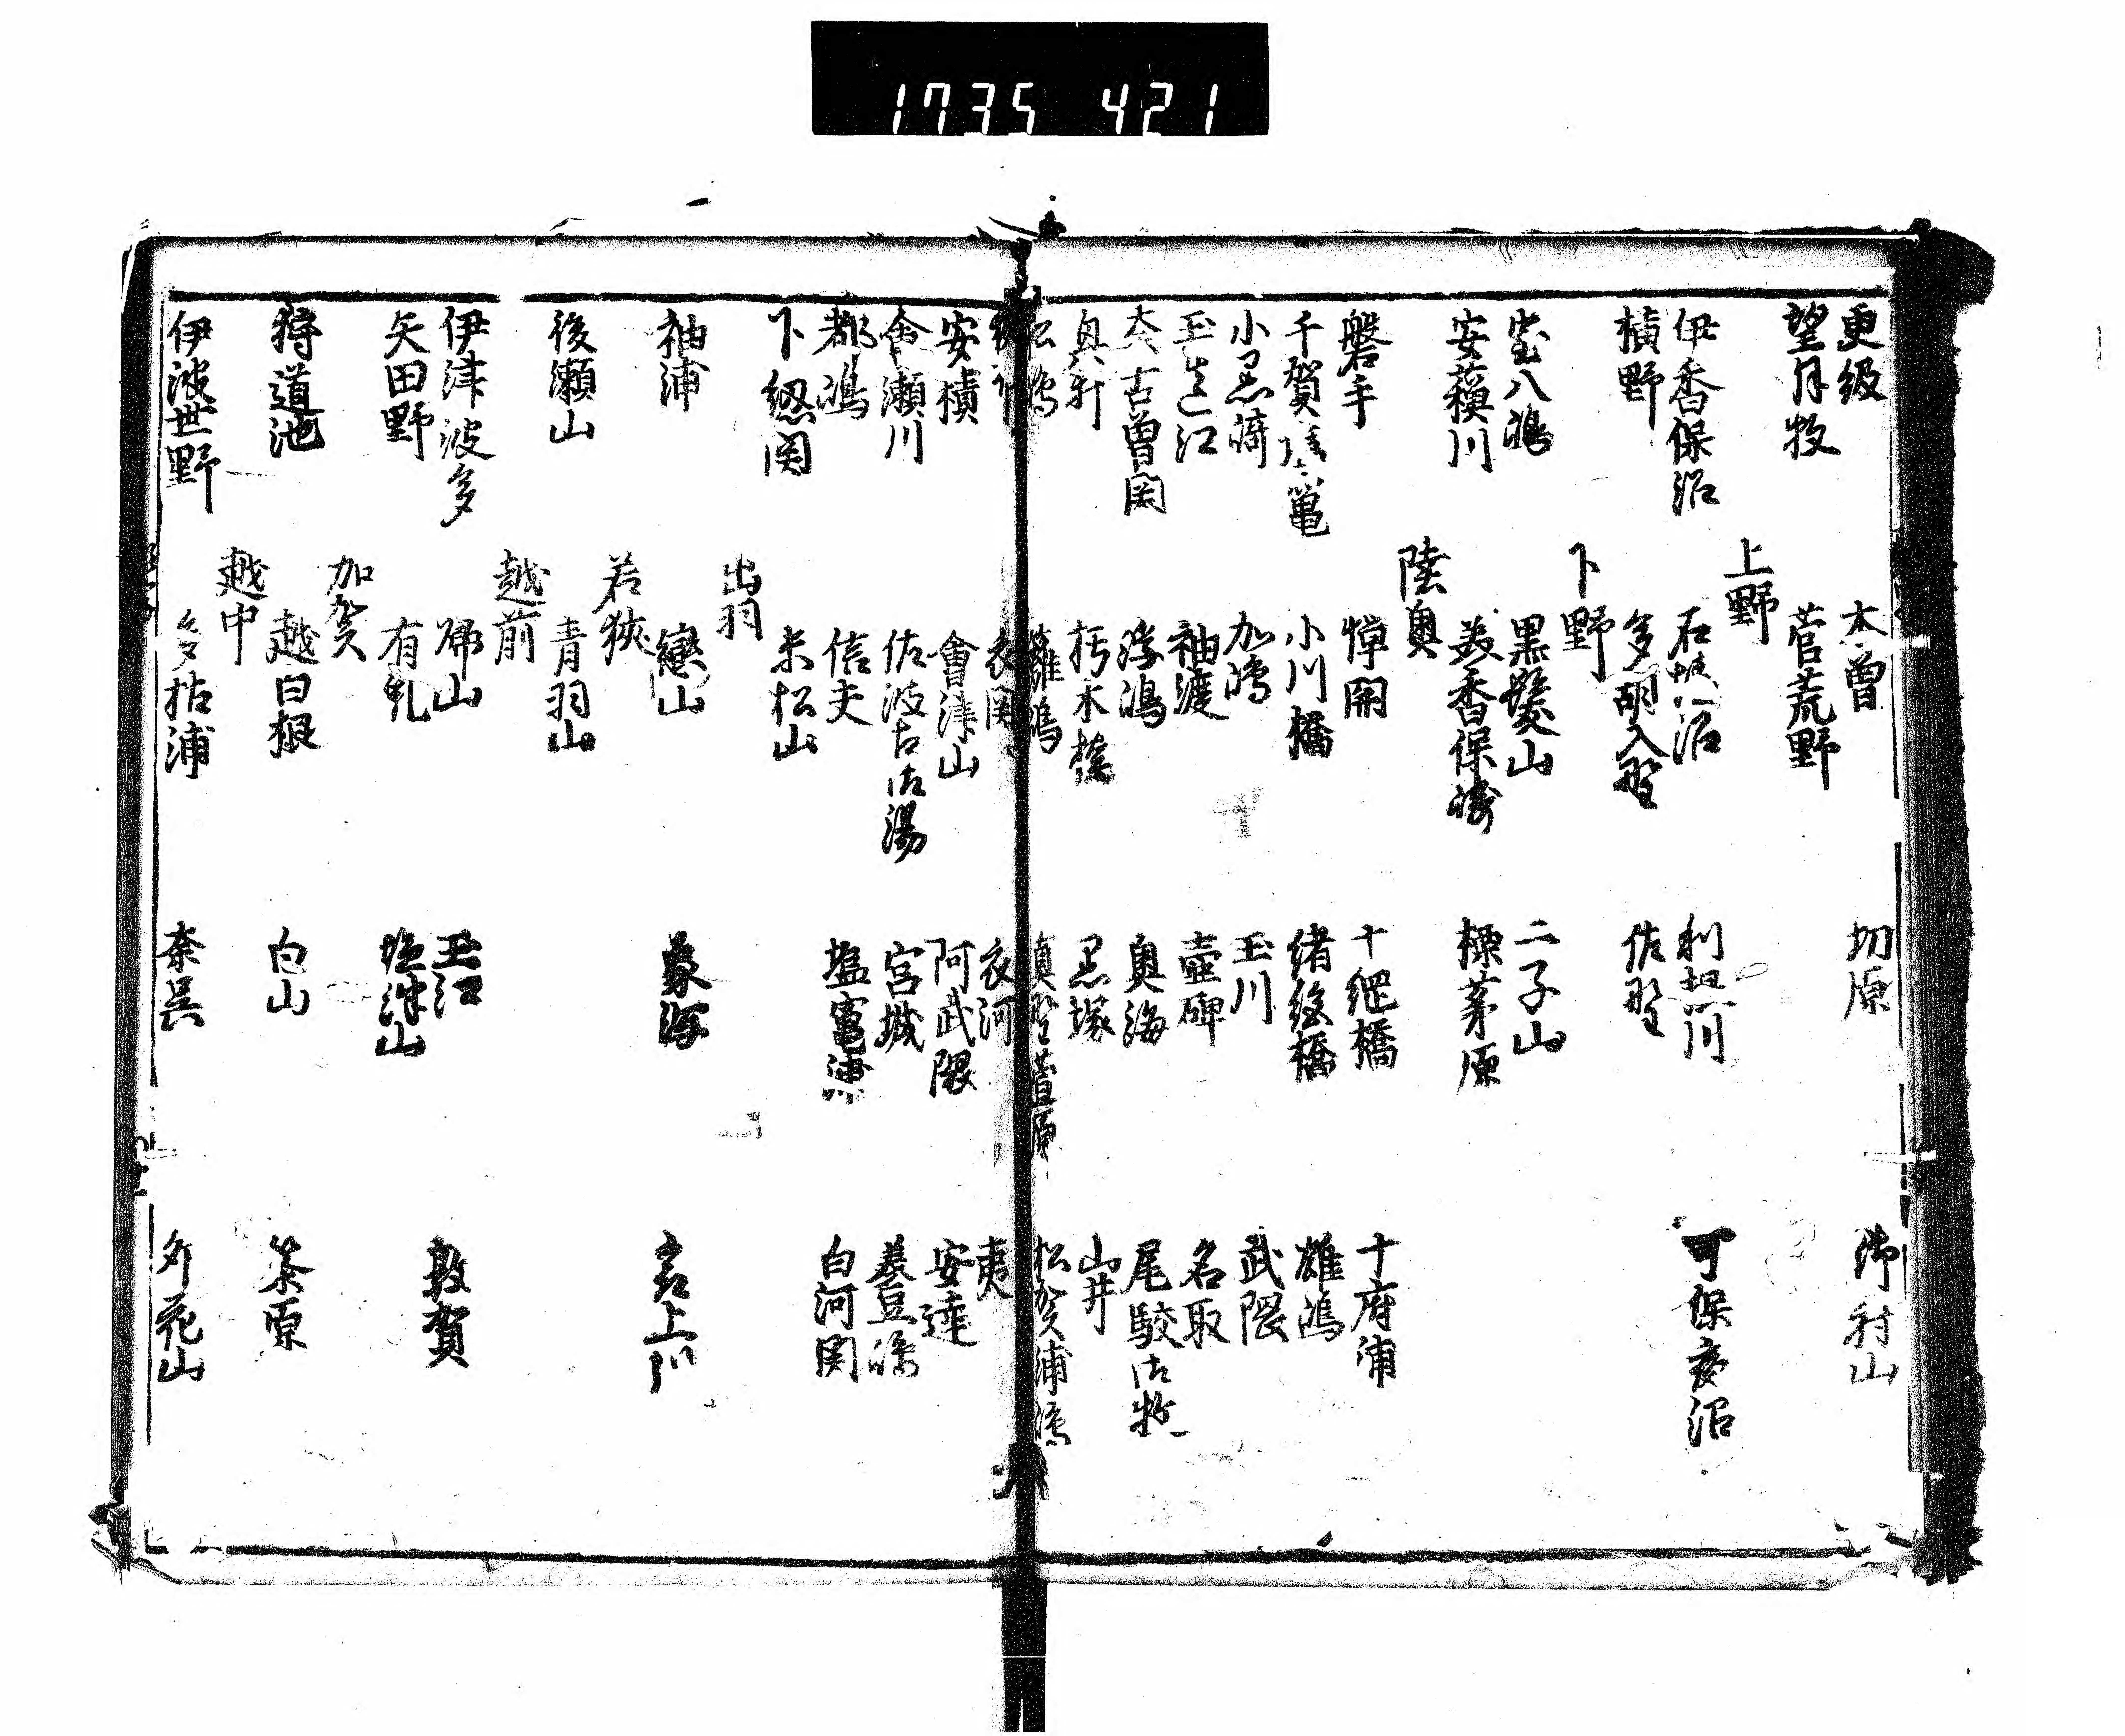 1735 421
更級 木曽 切原 御射山
望月牧 菅荒野
上野
伊香保沼 石 沼 利根川 可保夜沼
横野 多胡入野 佐野
下野
室八嶋 黒髪山 二子山
安蘓川 美香保崎 標茅原
陸奥
磐手 悼関 十綱橋 十府浦
千賀塩竈 小川橋 緒絶橋 雄嶋
小黒崎 加嶋 玉川 武隈
玉造江 袖渡 壺碑 名取
奈古曽関 浮嶋 奥海 尾駮御牧
奥 朽木橋 黒塚 山井
松嶋 籬嶋 真野萱原 松賀浦嶋
衣関 衣河 夷
安積 會津山 阿武隈 安達
會瀬川 佐波古御湯 宮城 美豆嶋
都嶋 信夫 塩竈浦 白河関
下紐関 末松山
出羽
袖浦 戀山 象潟 最上川
若狭
後瀬山 青羽山
越前
伊津波多 歸山 玉江 敦賀
矢田野 有乳 塩津山
加賀
狩道池 越白根 白山 篠原
越中
伊波世野 多枯浦 奈呉 卯花山